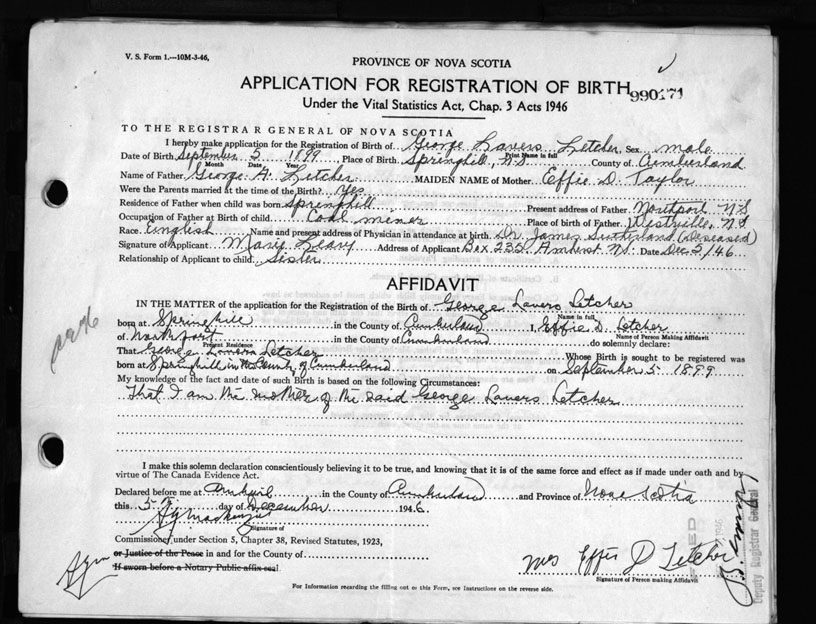 V. S. Form 1.—10M-3-46,
PROVINCE OF NOVA SCOTIA
APPLICATION FOR REGISTRATION OF BIRTH
990171
Under the Vital Statistics Act, Chap. 3 Acts 1946
TO THE REGISTRAR GENERAL OF NOVA SCOTIA
I hereby make application for the Registration of Birth of George Lavers Letcher, Sex male
Print Name in full
Date of Birth September 5 1899 Place of Birth Springhill, N.S. County of Cumberland
Month Date Year
Name of Father George A. Letcher MAIDEN NAME of Mother Effie D. Taylor
Were the Parents married at the time of the Birth? Yes
Residence of Father when child was born Springhill Present address of Father Northport N.S
Occupation of Father at Birth of child. Coal miner Place of birth of Father. Westville, N.S
Race. English Name and present address of Physician in attendance at birth. Dr. James Sutherland (Deseased)
Signature of Applicant Marie Leavy Address of Applicant Box 235 Amherst N.S. Date Dec 5/46
Relationship of Applicant to child. Sister
AFFIDAVIT
IN THE MATTER of the application for the Registration of the Birth of George Lavers Letcher
Name in full
born at Springhill in the County of Cumberland I, Effie D. Letcher
Name of Person Making Affidavit
of Northport in the County of Cumberland do solemnly declare:
Present Residence
That George Lavers Letcher Whose Birth is sought to be registered was
born at Springhill in the County of Cumberland on September 5 1899
My knowledge of the fact and date of such Birth is based on the following Circumstances:
That I am the mother of the said George Lavers Letcher
I make this solemn declaration conscientiously believing it to be true, and knowing that it is of the same force and effect as if made under oath and by
virtue of The Canada Evidence Act.
Declared before me at Amherst in the County of Cumberland and Province of Nova Scotia
this 5 day of December 1946
Signature of
Commissioner under Section 5, Chapter 38, Revised Statutes, 1923,
or Justice of the Peace in and for the County of
If sworn before a Notary Public affix seal
Mrs Effie D Letcher
Signature of Person making Affidavit
For Information regarding the filling out of this Form, see Instructions on the reverse side.
Deputy Registrar General